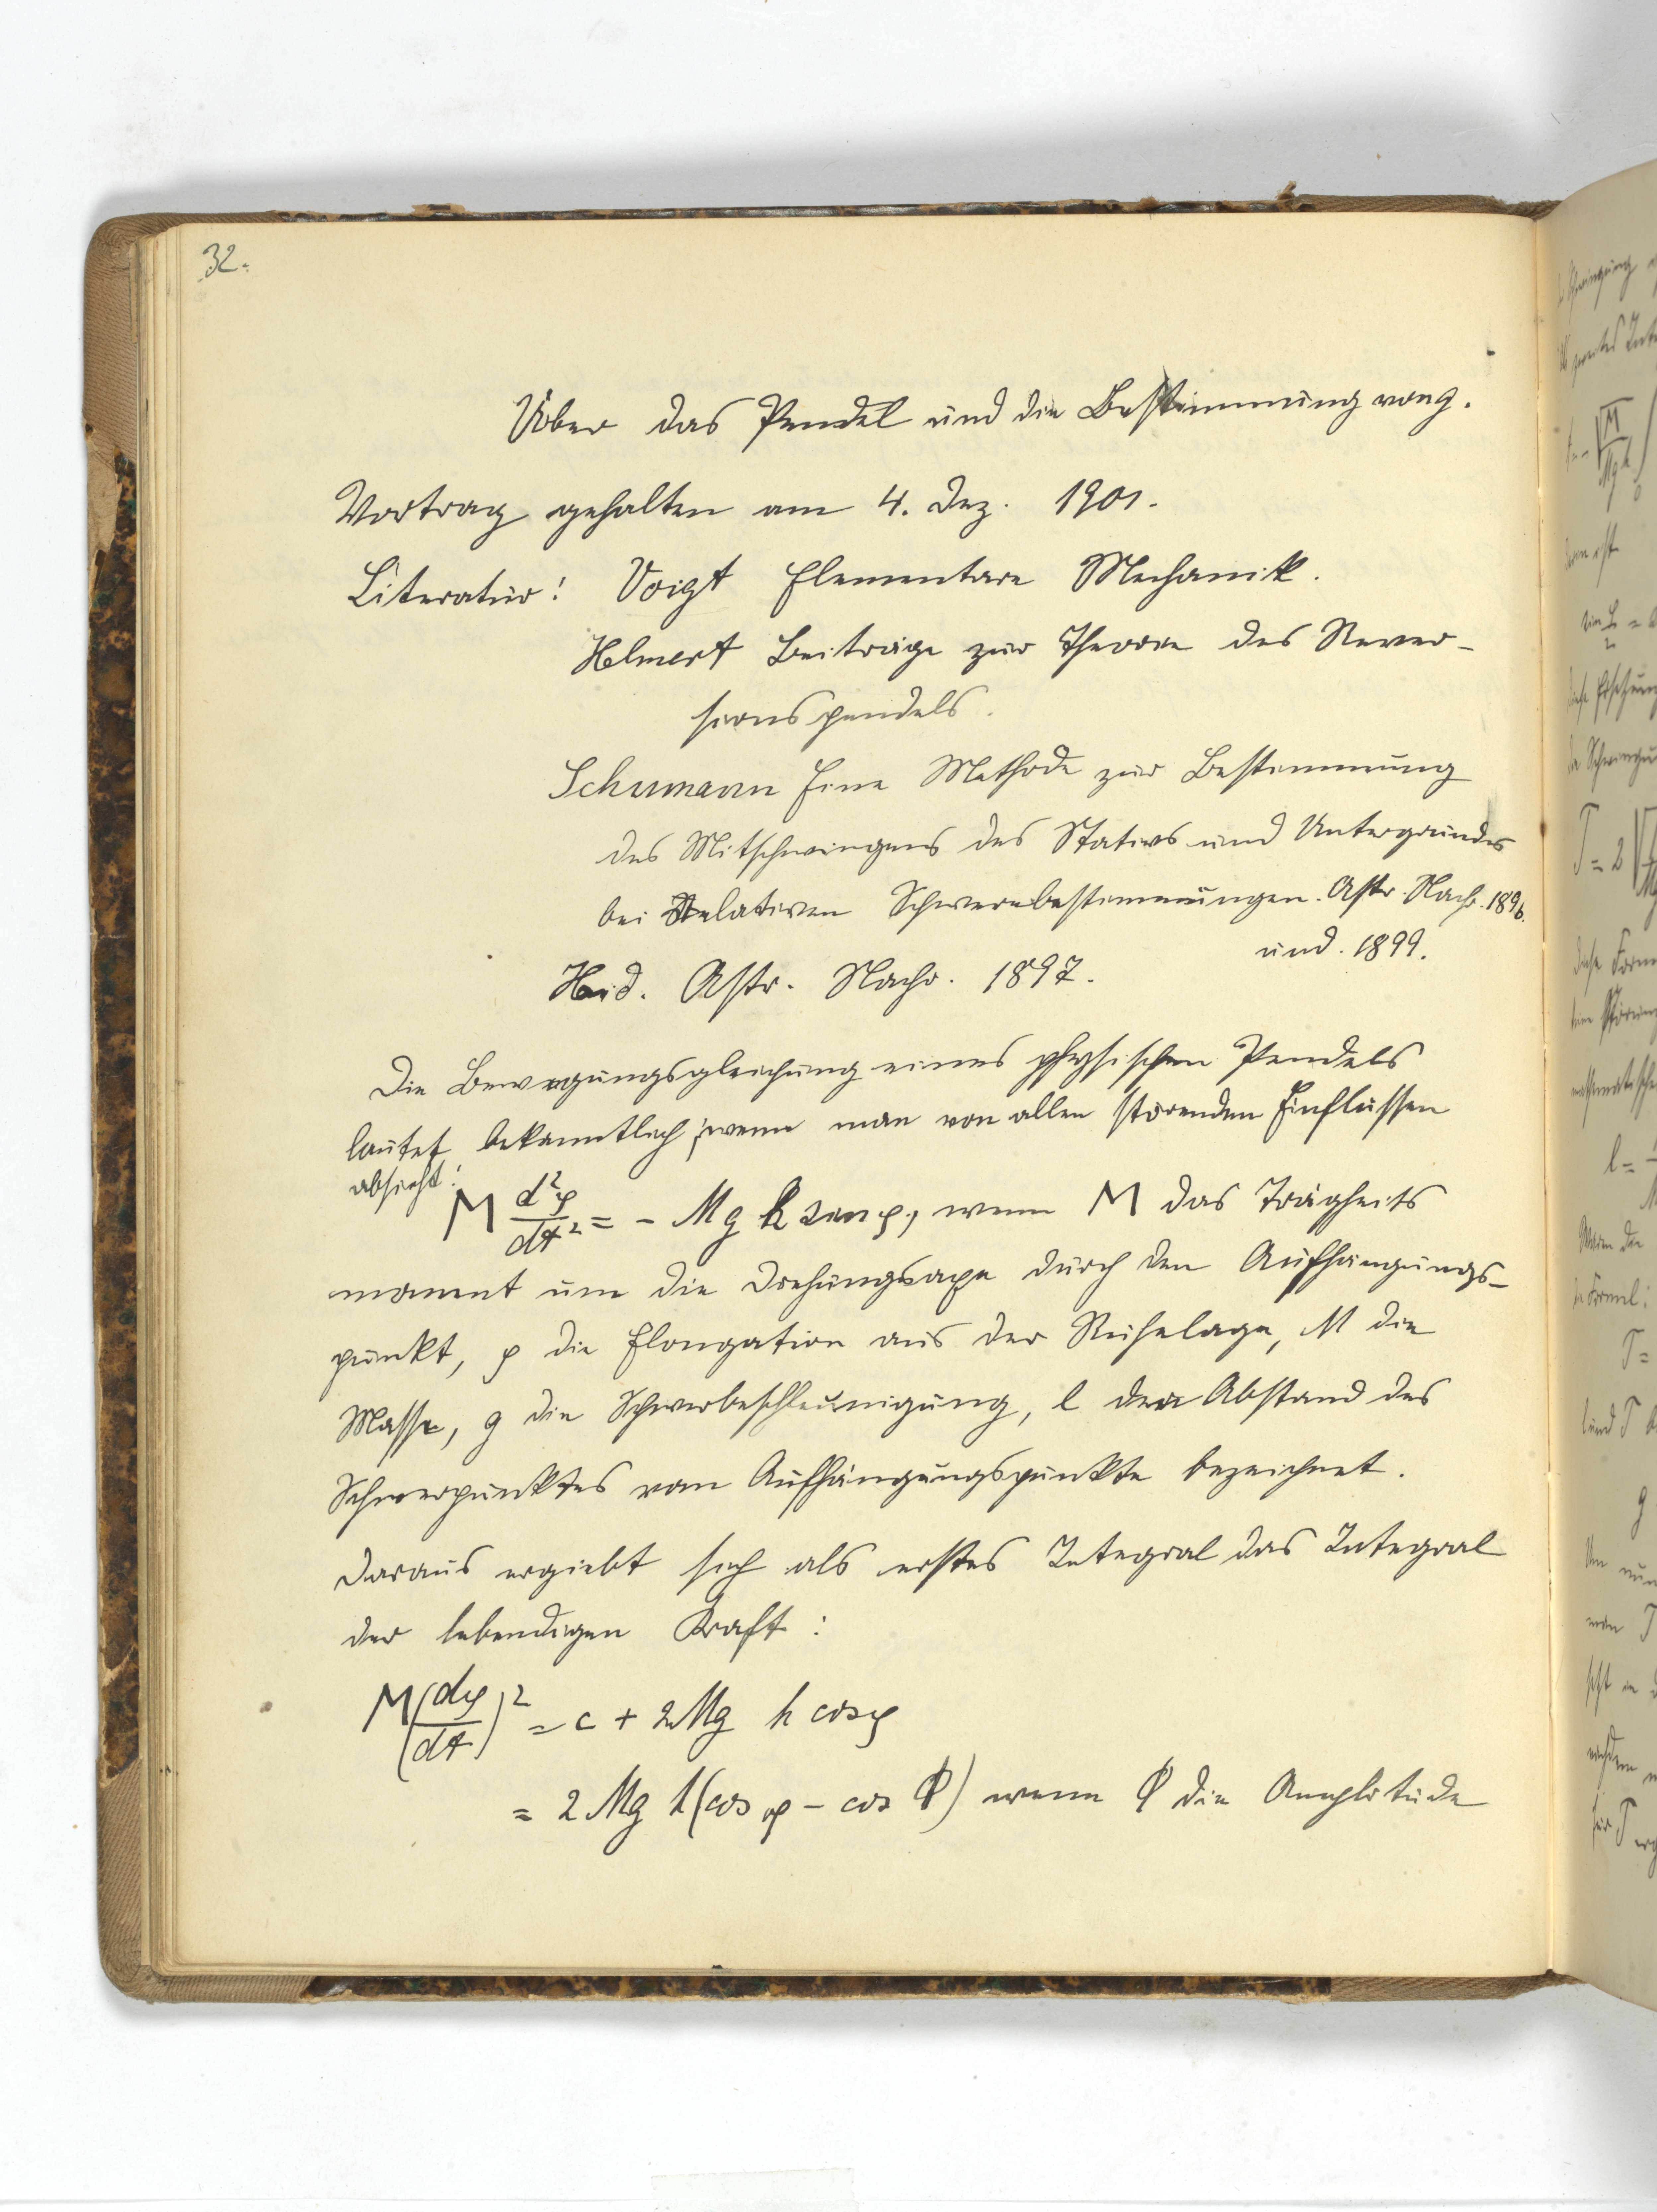 32.
Über das Pendel und die Bestimmung von g.
Vortrag gehalten am 4. Dez. 1901.
Literatur: Voigt Elementare Mechanik.
Helmert Beiträge zur Theorie des Rever-
sionspendels.
Schumann Eine Methode zur Bestimmung
des Mitschwingens des Stativs und Untergrundes
bei Relativen Schwerebestimmungen. Astr. Nachr. 1896.
und. 1899.
Astr. Nachr. 1897.
Die Bewegungsgleichung eines physischen Pendels
lautet bekanntlich, wenn man von allen störenden Einflüssen
absieht:
M d²φ/dt² = - Mg h sin φ, wenn M das Trägheits
moment um die Drehungsaxe durch den Aufhängungs-
punkt, φ die Elongation aus der Ruhelage, M die
Masse, g die Schwerbeschleunigung, l den Abstand des
Schwerpunktes vom Aufhängungspunkte bezeichnet.
Daraus ergiebt sich als erstes Integral das Integral
der lebendigen Kraft:
M(dφ/dt)² = c + 2Mg h cosφ
= 2 Mg h (cos φ - cos Φ) wenn Φ die Amplitude